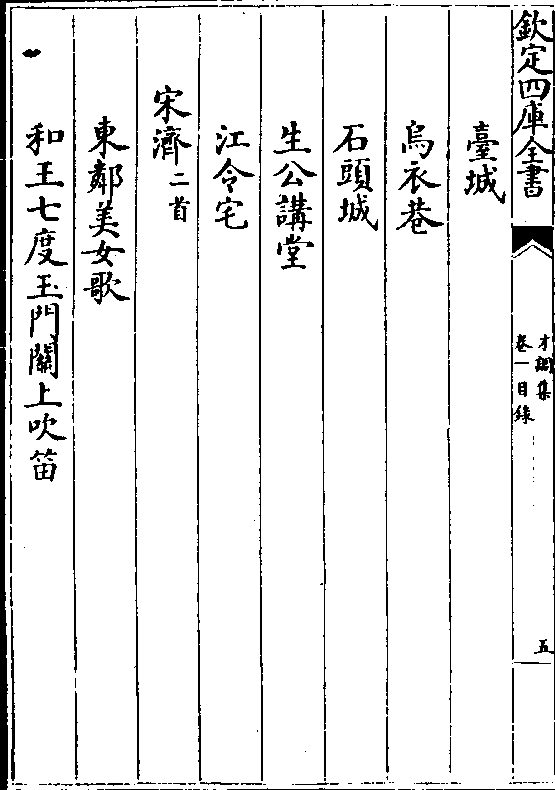 欽定四庫全書
才調集
卷一目錄
五
臺城
烏衣巷
石頭城
生公講堂
江令宅
宋濟二首
東鄰美女歌
和王七度玉門關上吹笛